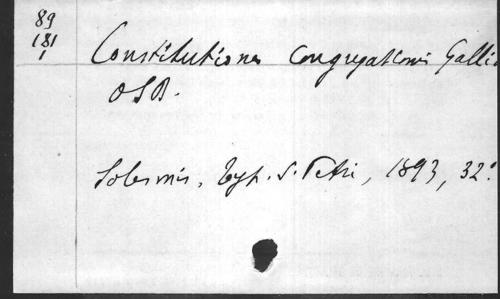 89
181
1
Constitutiones Congregationis Galli
OSB.
Solesmis, typ. S. Petri, 1893, 32°.